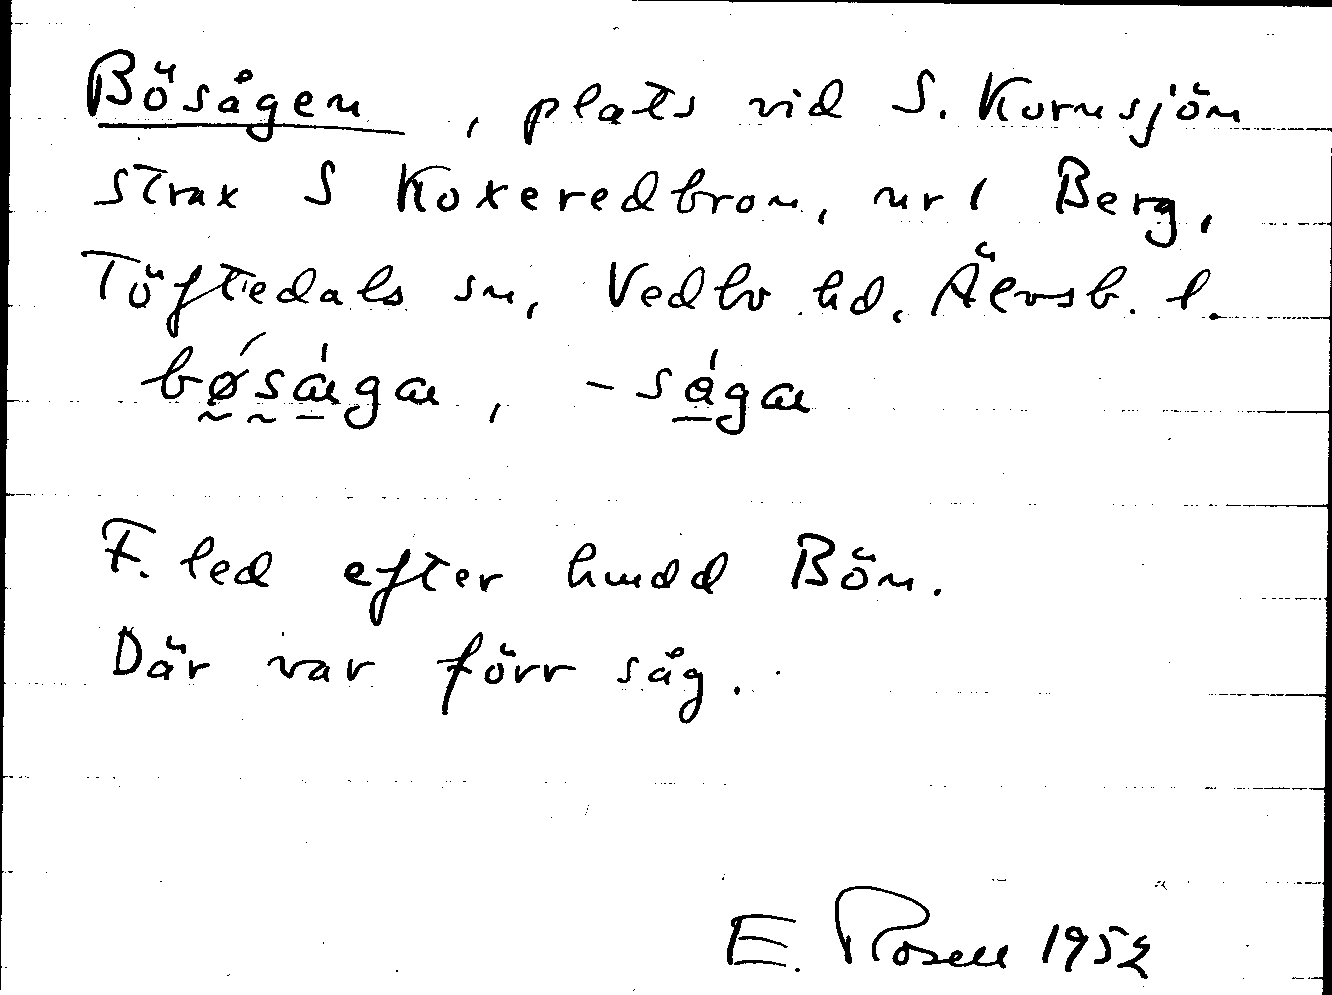 Bösågen, plats vid S. Kornsjön
strax S Koxeredbron, nr 1 Berg,
Töftedals sn, Vedbo hd. Älvsb. l.
F. led efter hmdd Bön.
Där var förr såg.
E. Rosell 1952